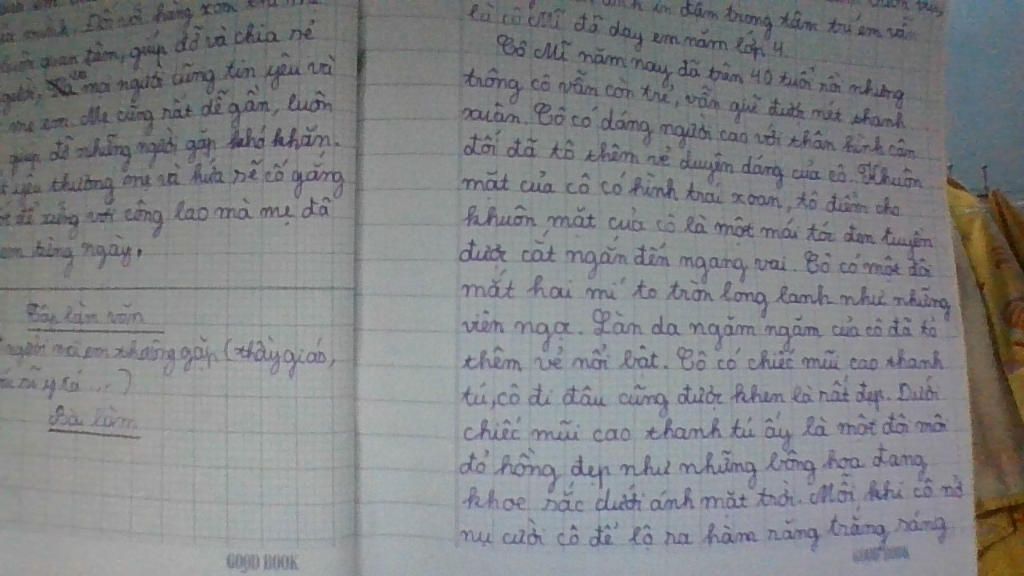 mình. Đối với hàng xóm
quan tâm, giúp đỡ và chia sẻ
người. Và mọi người cũng tin yêu và
mẹ em. Mẹ cũng rất dễ gần, luôn
giúp đỡ những người gặp khó khăn.
yêu thương mẹ và hứa sẽ cố gắng
để xứng với công lao mà mẹ đã
em từng ngày.
Tập làm văn
người mà em thường gặp (thầy giáo,
Bài làm
in đậm trong tâm trí em vẫn
là cô Mĩ đã dạy em năm lớp 4.
Cô Mĩ năm nay đã trên 40 tuổi rồi nhưng
trông cô vẫn còn trẻ, vẫn giữ được nét thanh
xuân. Cô có dáng người cao với thân hình cân
đối đã tô thêm vẻ duyên dáng của cô. Khuôn
mặt của cô có hình trái xoan, tô điểm cho
khuôn mặt của cô là một mái tóc đen tuyền
được cắt ngắn đến ngang vai. Cô có một đôi
mắt hai mí to tròn long lanh như những
viên ngọc. Làn da ngăm ngăm của cô đã tô
thêm vẻ nổi bật. Cô có chiếc mũi cao thanh
tú, cô đi đâu cũng được khen là rất đẹp. Dưới
chiếc mũi cao thanh tú ấy là một đôi môi
đỏ hồng đẹp như những bông hoa đang
khoe sắc dưới ánh mặt trời. Mỗi khi cô nở
nụ cười cô để lộ ra hàm răng trắng sáng
GOOD BOOK
GOOD BOOK